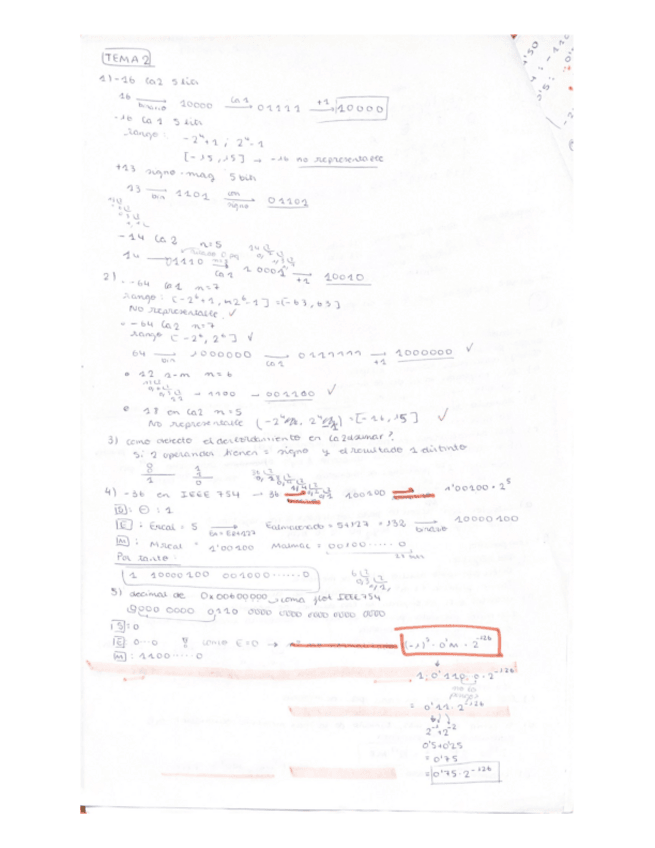 TEMA 2
1) -16 Ca2 5 bits
16 → binario 10000 → Ca1 01111 → +1 10000
-16 Ca1 5 bits
rango: -2⁴+1 ; 2⁴-1
[-15, 15] → -16 no representable
+13 signo-mag 5 bits
13 → bin 1101 → con signo 01101
-14 Ca2 n=5
14 → 01110 → Ca1 10001 → +1 10010
2) -64 Ca1 n=7
rango: [-2⁶+1, 2⁶-1] = [-63, 63]
No representable ✓
-64 Ca2 n=7
rango [-2⁶, 2⁶] ✓
64 → bin 1000000 → Ca1 0111111 → +1 1000000 ✓
12 s-m n=6
→ 1100 → 001100 ✓
18 en Ca2 n=5
No representable (-2⁴, 2⁴-1) = [-16, 15] ✓
3) como detecto el desbordamiento en Ca2 al sumar?
Si 2 operandos tienen = signo y el resultado 1 distinto
4) -36 en IEEE 754 → 36 → 100100 → 1'00100 · 2⁵
S: ⊖ : 1
E: Ereal = 5 → Ea=Er+127 Ealmacenado = 5+127 = 132 → binario 10000100
M: Mreal = 1'00100 Malmac = 00100·····0
Por tanto:
1 10000100 001000······0
5) decimal de 0x00600000 como float IEEE754
0000 0000 0110 0000 0000 0000 0000 0000
S: 0
E: 0··0 como E=0 → (-1)ˢ · 0'M · 2⁻¹²⁶
M: 1100·····0
1·0'110··0·2⁻¹²⁶
no lo pongo
= 0'11·2⁻¹²⁶
2⁻¹+2⁻²
0'5+0'25
= 0'75
= 0'75·2⁻¹²⁶